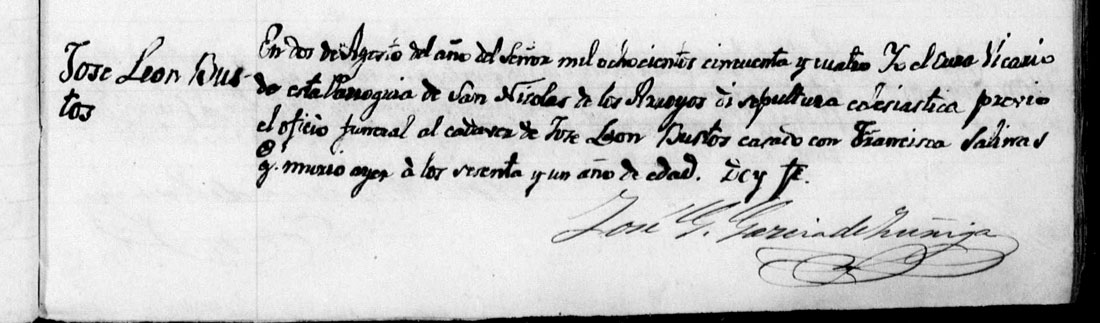 Jose Leon Bus-
tos
En dos de Agosto del año del Señor mil ochocientos cincuenta y cuatro Yo el cura Vicario
de esta Parroquia de San Nicolas de los Arroyos di sepultura eclesiastica previo
el oficio funeral al cadaver de Jose Leon Bustos casado con Francisca Salinas
q.e murio ayer á los sesenta y un año de edad. Doy fe.
José G. Garcia de Zúñiga